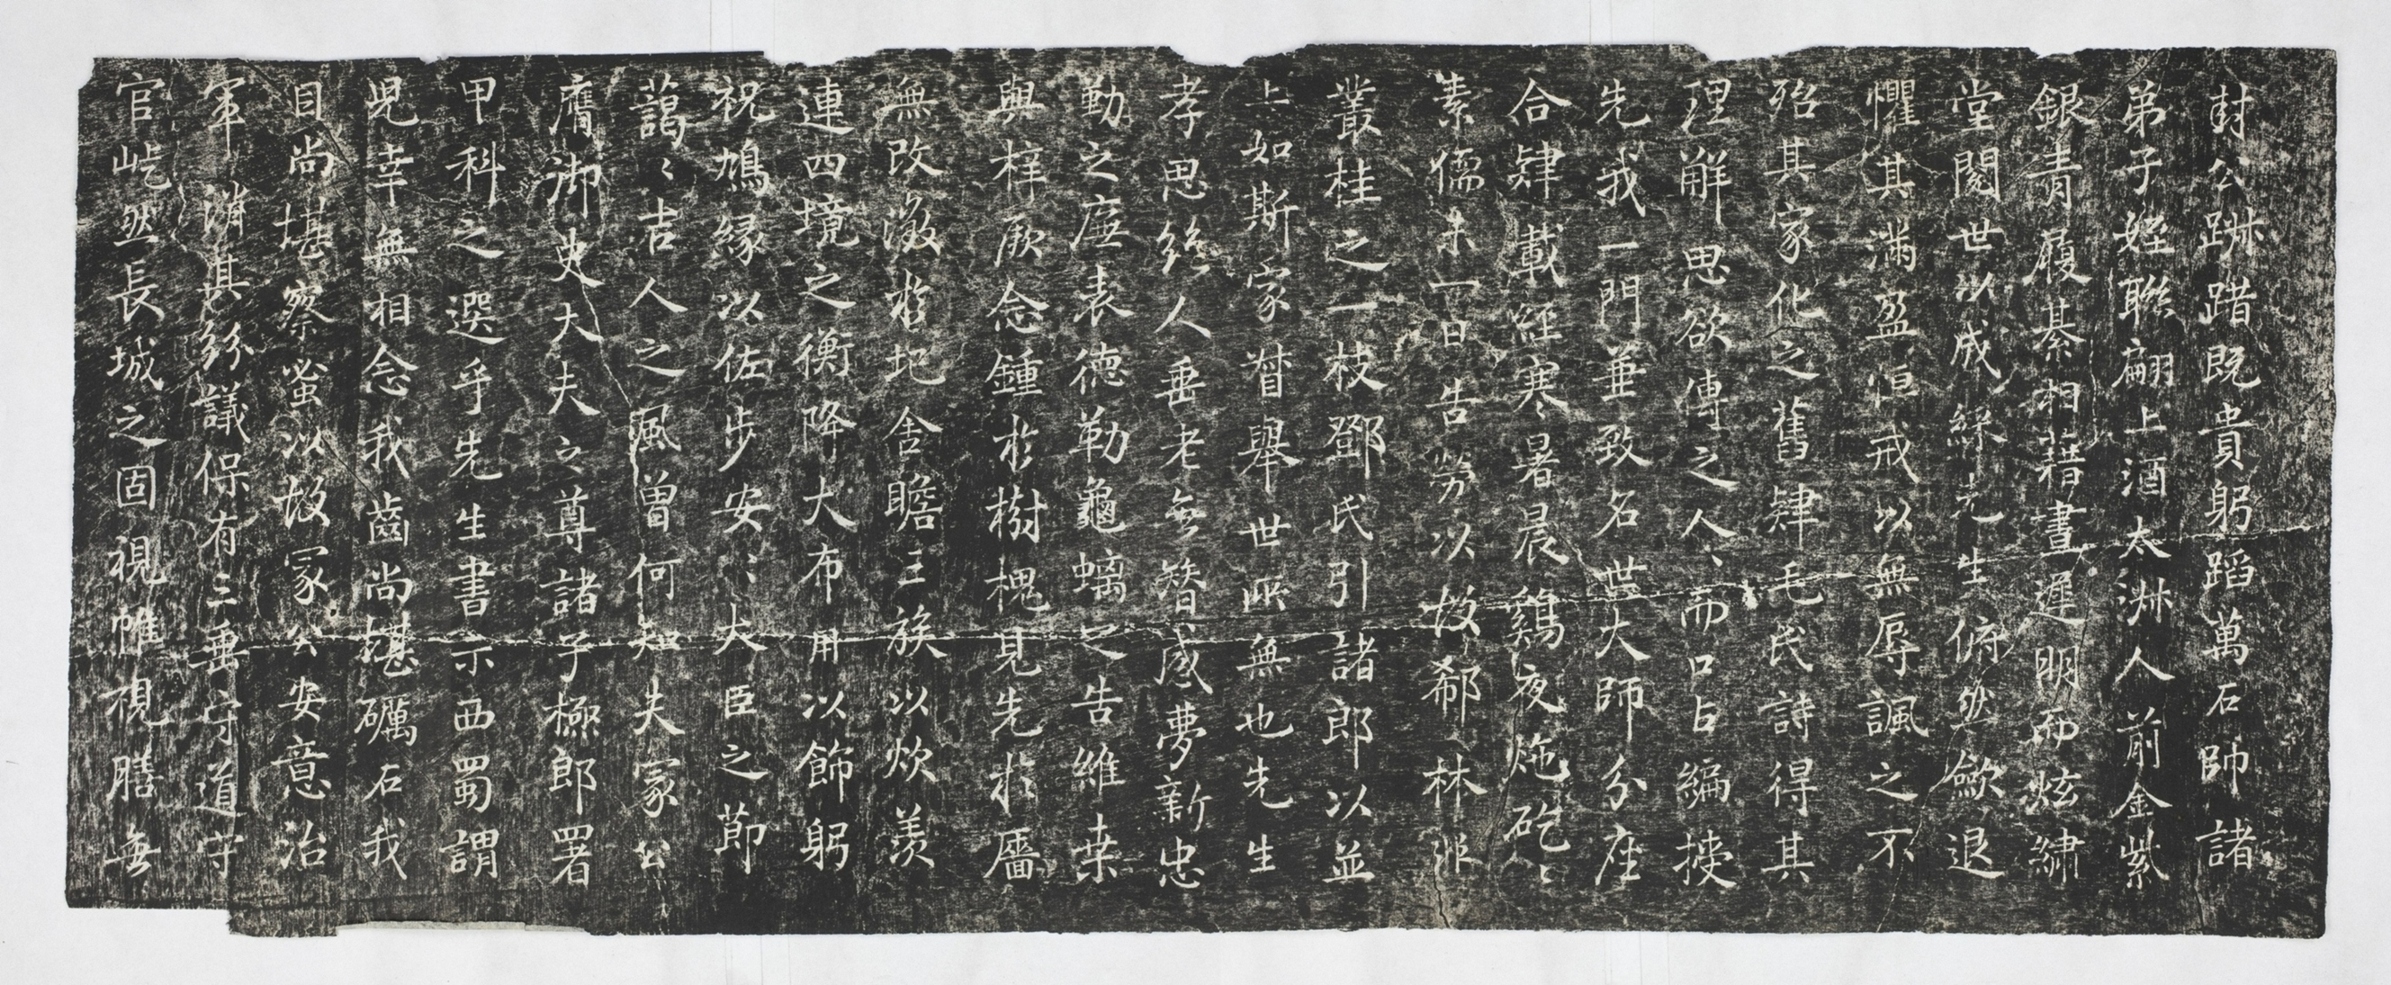 封公跰踖既貴躬蹈萬石帥諸
弟子姪聯翩上酒太洲人前金紫
銀青履綦相藉晝遲明而炫繡
堂閱世以成綵先生俯然歛退
懼其滿盈恒戒以無辱諷之不
殆其家化之舊肄毛氏詩得其
理解思欲傳之人、而口占編摟
先我一門並致名世大師分座
合肄載經寒暑晨鷄夜炧矻、
素儒未一日告勞以故郗林非
叢桂之一枝鄧氏引諸郎以並
上如斯家瞀舉世所無也先生
孝思終人垂老無簪感夢新忠
勤之廬表德勒龜螭之告維桒
與梓厥念鍾於樹槐見先於廧
無改澂於圯舍瞻三族以炊羨
連四境之衡降大布用以飾躬
祝鳩緣以佐步安、大臣之節
藹、吉人之風曾何知失冡公
膺御史大夫之尊諸子極郎署
甲科之選乎先生書示西蜀謂
児幸無相念我齒尚堪礪石我
目尚堪察蚤以故冡公安意治
軍消其紛議保有三垂守道守
官屹然長城之固視帷視膳無